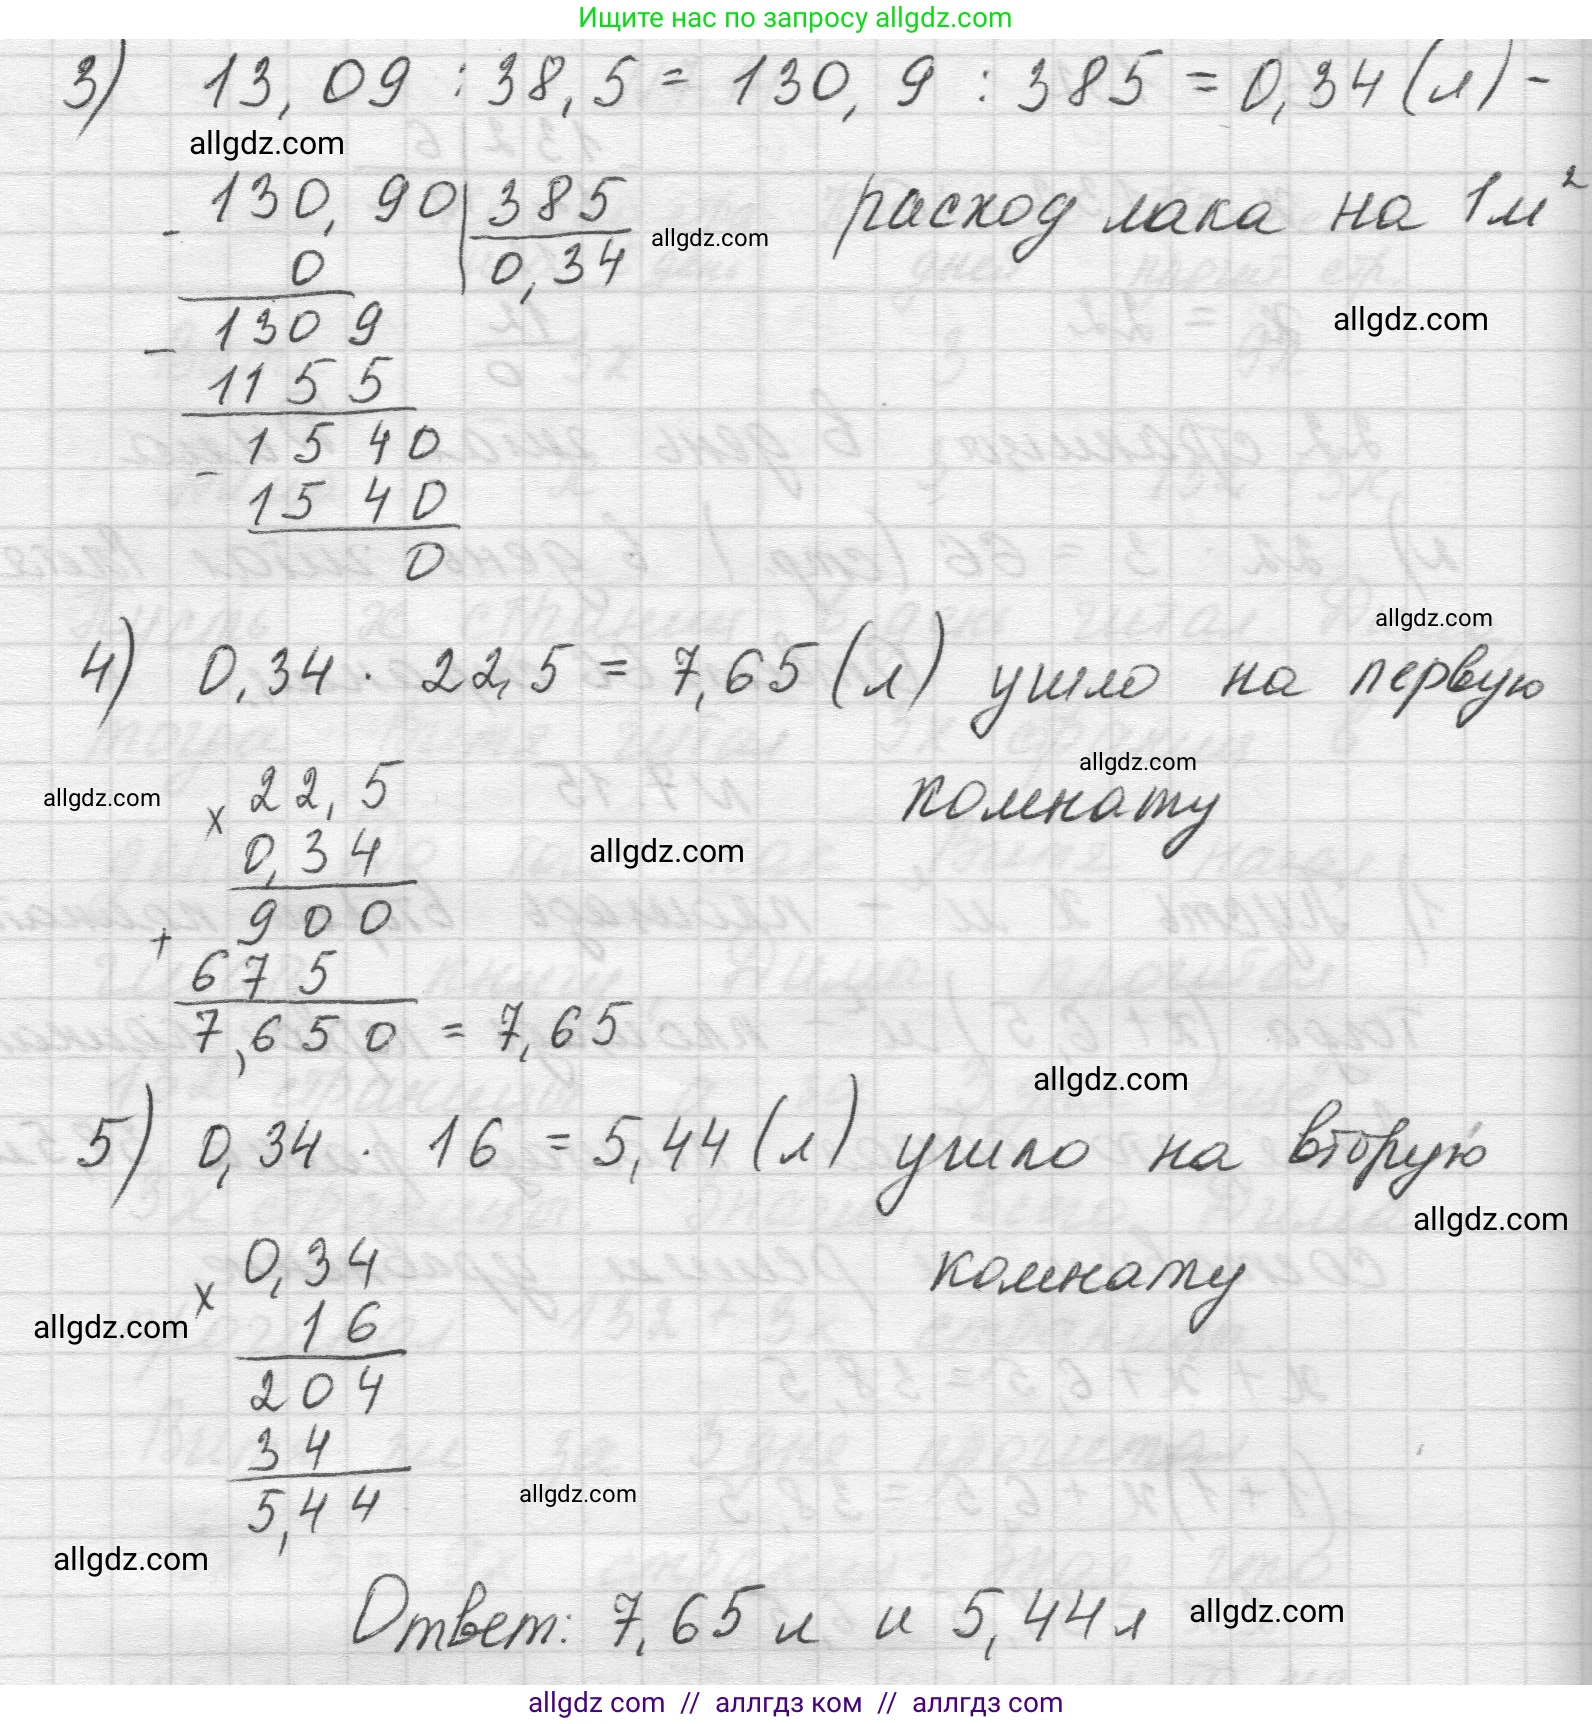 Ищите нас по запросу allgdz.com
3) 13,09 : 38,5 = 130,9 : 385 = 0,34 (л) -
allgdz.com
130,90 | 385
расход лака на 1м²
allgdz.com
- 0
0,34
allgdz.com
1309
- 1155
1540
- 1540
0
allgdz.com
4) 0,34 · 22,5 = 7,65 (л) ушло на первую
allgdz.com
комнату
allgdz.com
x 22,5
0,34
allgdz.com
900
+ 675
7,650 = 7,65
allgdz.com
5) 0,34 · 16 = 5,44 (л) ушло на вторую
allgdz.com
комнату
x 0,34
16
allgdz.com
204
34
allgdz.com
5,44
allgdz.com
Ответ: 7,65 л и 5,44 л
allgdz.com
allgdz com // аллгдз ком // allgdz com